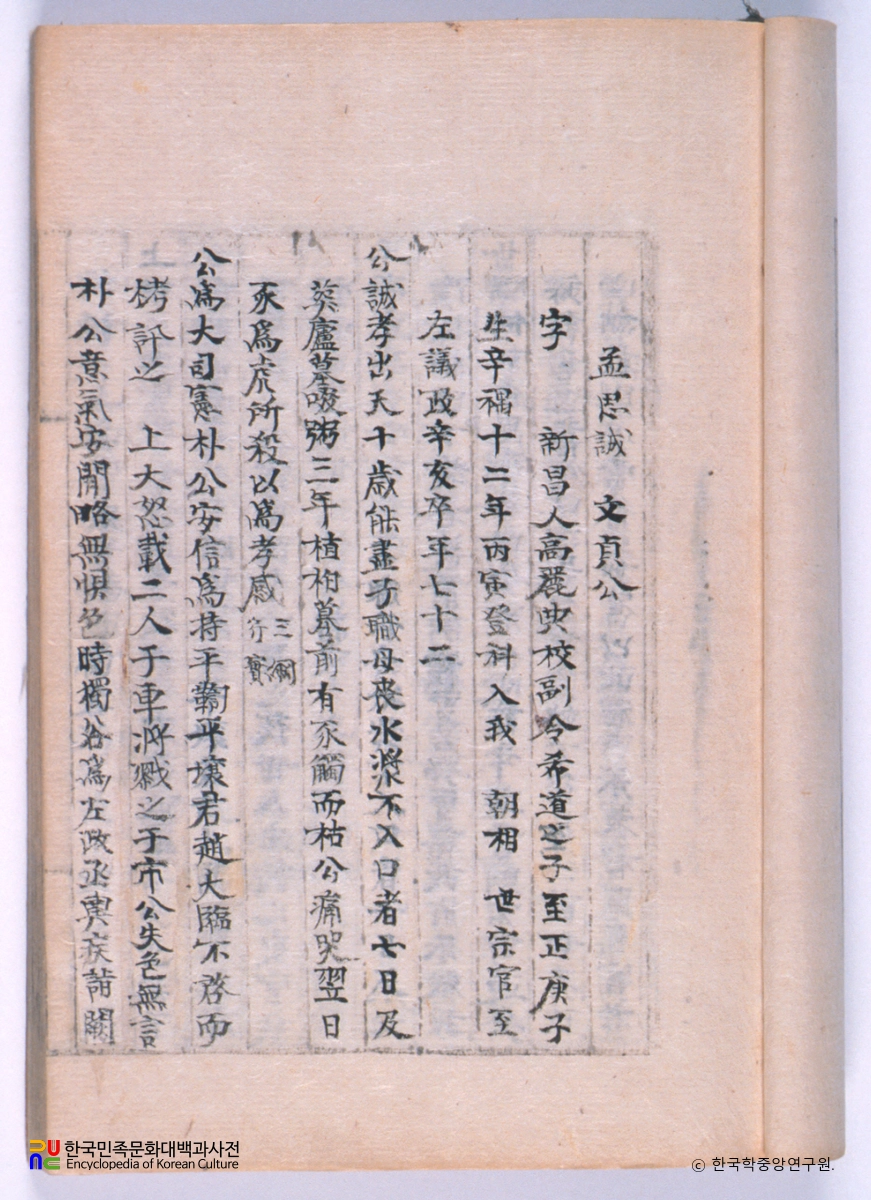 孟思誠 文貞公
字 新昌人高麗典校副令希道之子至正庚子
生辛禑十二年丙寅登科入我 朝相 世宗官至
左議政辛亥卒年七十二
公誠孝出天十歲能盡子職母喪水漿不入口者七日及
葬廬墓啜粥三年植栢墓前有豕觸而枯公痛哭翌日
豕爲虎所殺以爲孝感 三綱行實
公爲大司憲朴公安信爲持平鞫平壤君趙大臨不啓而
栲訊之 上大怒載二人于車將戮之于市公失色無言
朴公意氣安閒略無惧色時獨谷爲左政丞輿疾詣闕
한국민족문화대백과사전
Encyclopedia of Korean Culture
© 한국학중앙연구원.